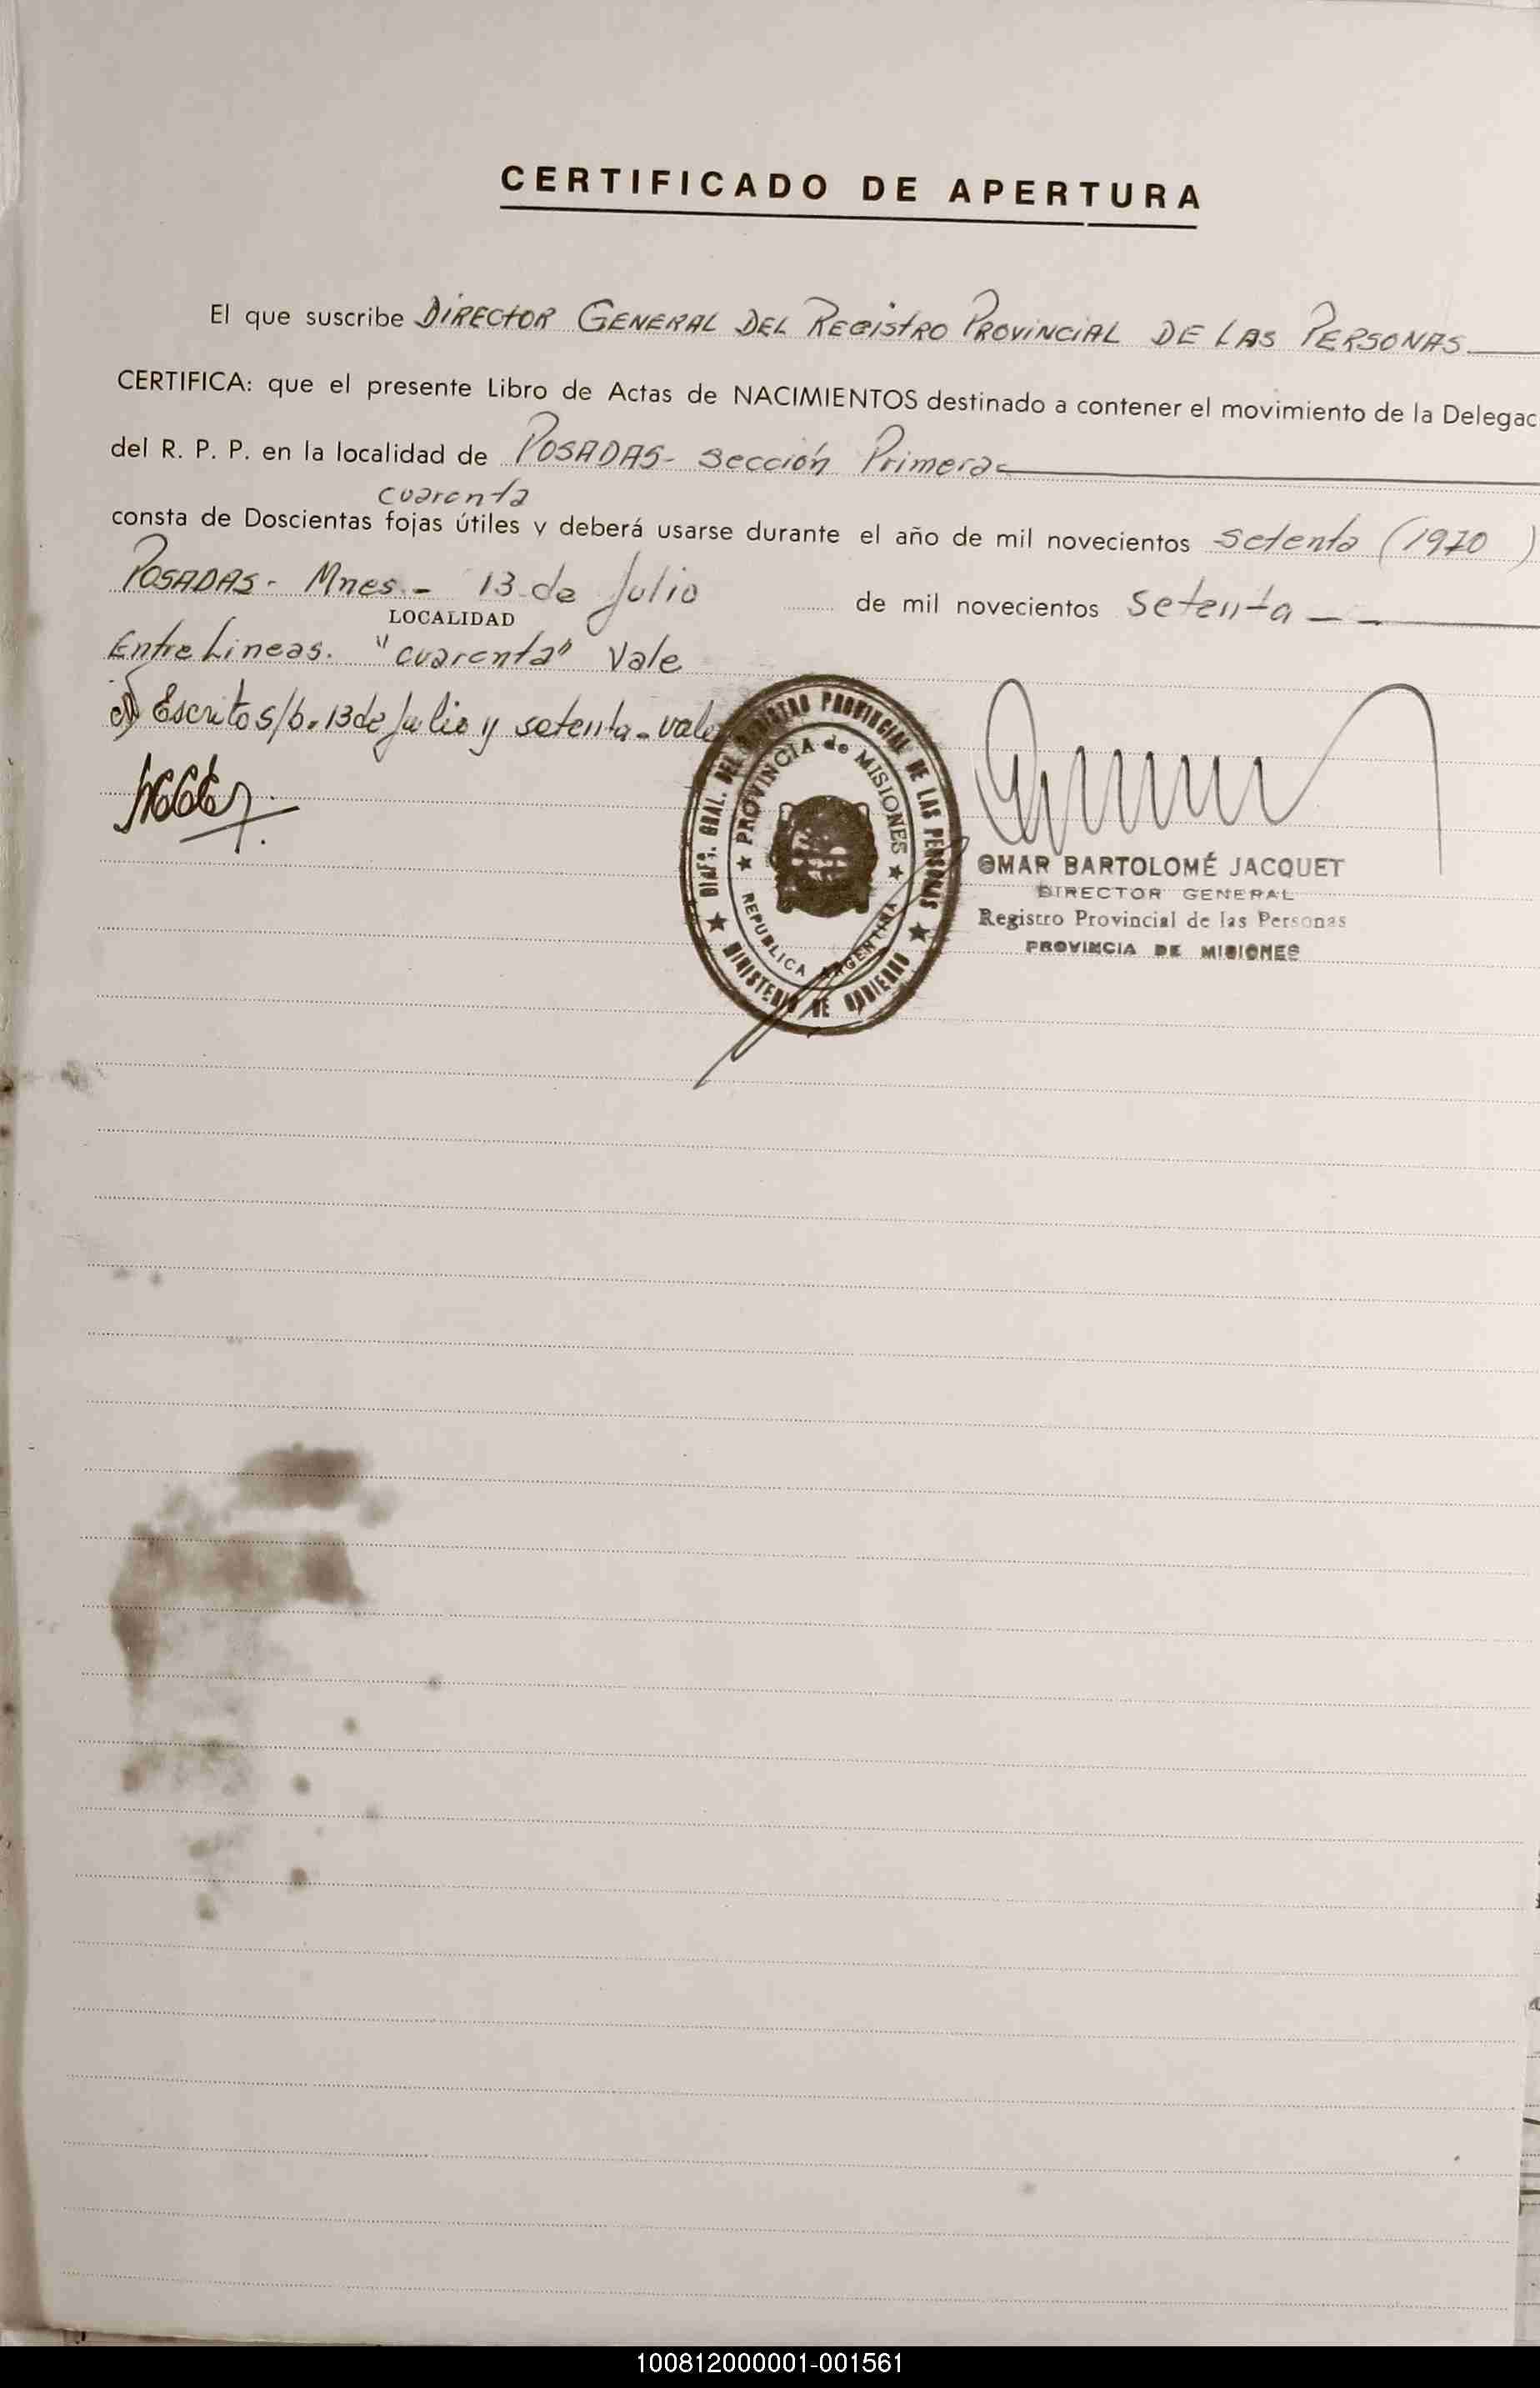 CERTIFICADO DE APERTURA
El que suscribe DIRECTOR GENERAL DEL REGISTRO PROVINCIAL DE LAS PERSONAS
CERTIFICA: que el presente Libro de Actas de NACIMIENTOS destinado a contener el movimiento de la Delegac
del R. P. P. en la localidad de POSADAS- Sección Primera
cuarenta
consta de Doscientas fojas útiles y deberá usarse durante el año de mil novecientos setenta (1970)
POSADAS- Mnes.- 13 de Julio de mil novecientos setenta - -
LOCALIDAD
Entre Lineas. "cuarenta" Vale
Escrito s/b. 13 de Julio y setenta. vale
DIREC. GRAL. DEL REGISTRO PROVINCIAL DE LAS PERSONAS
PROVINCIA de MISIONES
REPUBLICA ARGENTINA
MINISTERIO DE GOBIERNO
OMAR BARTOLOMÉ JACQUET
DIRECTOR GENERAL
Registro Provincial de las Personas
PROVINCIA DE MISIONES
100812000001-001561